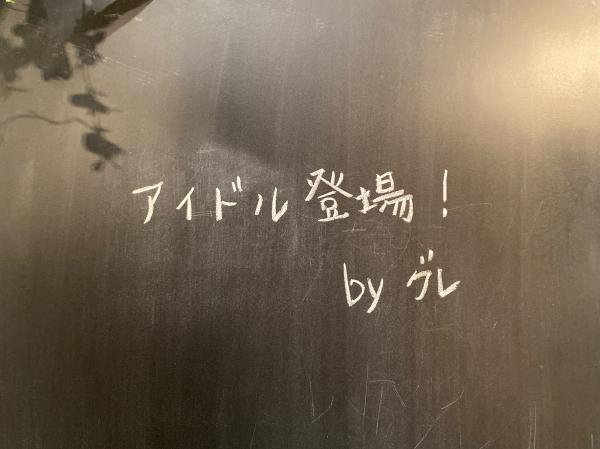 アイドル登場!
by グレ